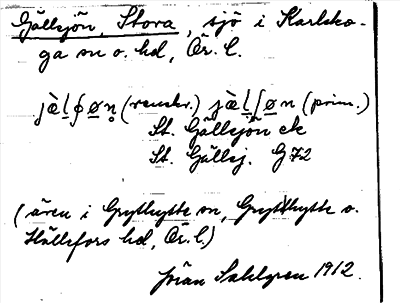 Gällsjön, Stora, sjö i Karlsko-
ga sn o. hd, Ör. l.
jæ̀l̠ʃøn̥ (vanskr.) jæ̀l̠ʃøn (prim.)
St. Gällsjön ek
St. Gällsj. G72
(även i Grythytte sn, Grythytte o.
Hällefors hd, Ör. l.)
Jöran Sahlgren 1912.